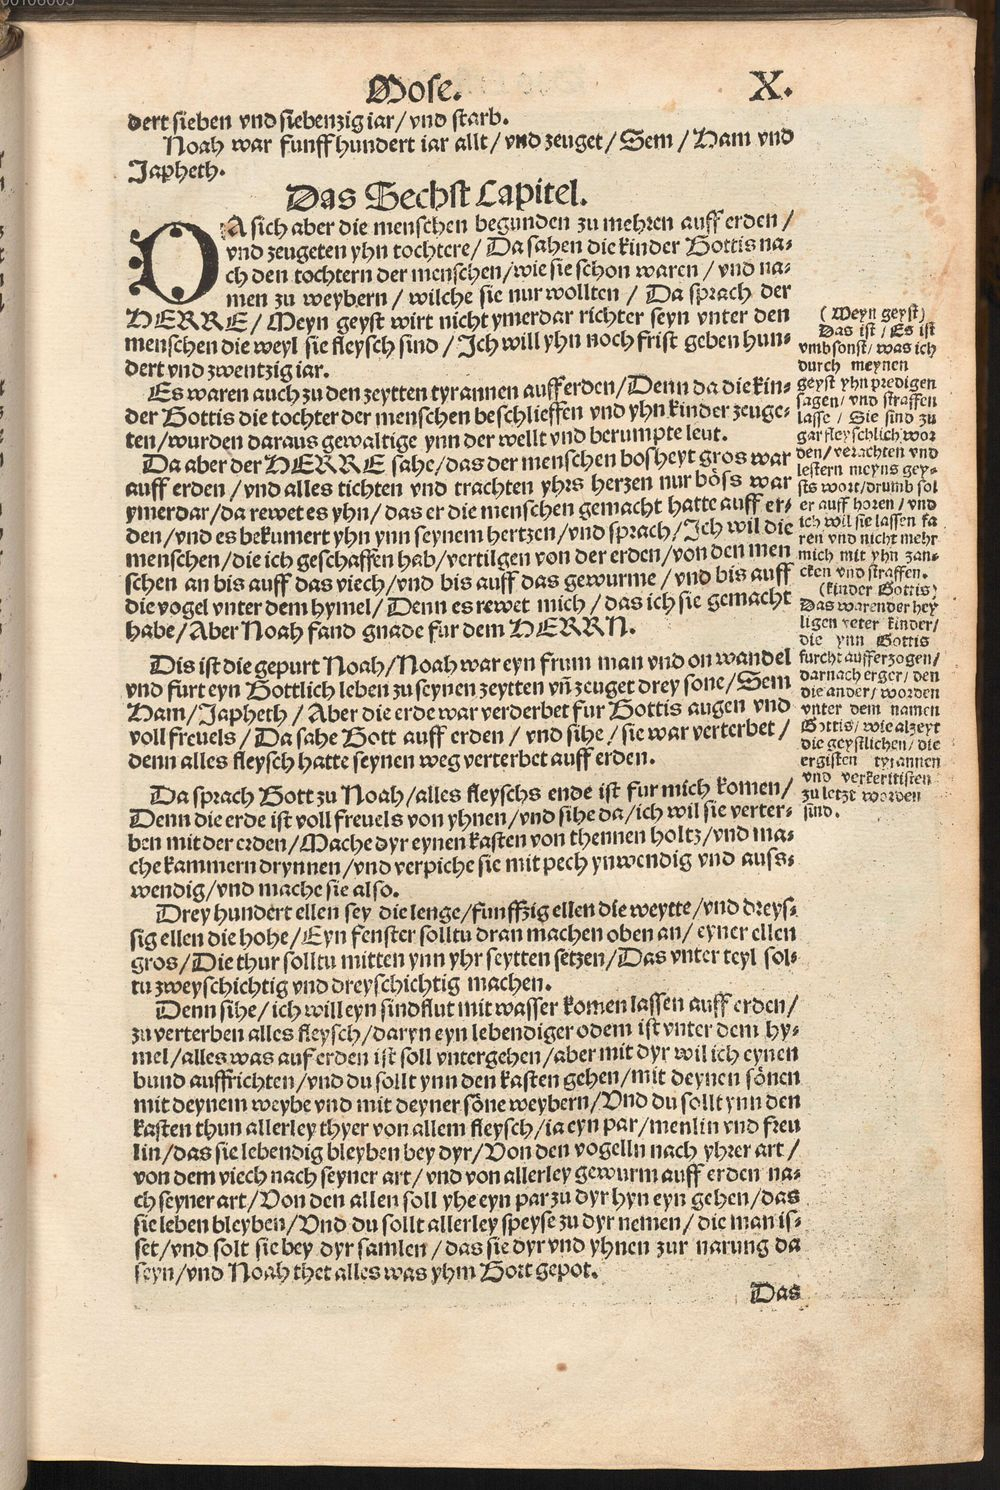 00106005
Mose. X.
dert sieben vnd siebenzig iar/vnd starb.
Noah war funffhundert iar allt/vnd zeuget/Sem/Ham vnd
Japheth.
Das Sechst Capitel.
DA sich aber die menschen begunden zu mehren auff erden/
vnd zeugeten yhn tochtere/Da sahen die kinder Gottis na-
ch den tochtern der menschen/wie sie schon waren/vnd na-
men zu weybern/wilche sie nur wollten/Da sprach der
HERRE/Meyn geyst wirt nicht ymerdar richter seyn vnter den
menschen die weyl sie fleysch sind/Ich will yhn noch frist geben hun-
dert vnd zwentzig iar.
Es waren auch zu den zeytten tyrannen auff erden/Denn da die kin-
der Gottis die tochter der menschen beschlieffen vnd yhn kinder zeuge-
ten/wurden daraus gewaltige ynn der wellt vnd berumpte leut.
Da aber der HERRE sahe/das der menschen bosheyt gros war
auff erden/vnd alles tichten vnd trachten yhrs herzen nur böss war
ymerdar/da rewet es yhn/das er die menschen gemacht hatte auff er-
den/vnd es bekumert yhn ynn seynem hertzen/vnd sprach/Ich wil die
menschen/die ich geschaffen hab/vertilgen von der erden/von den men
schen an bis auff das viech/vnd bis auff das gewurme/vnd bis auff
die vogel vnter dem hymel/Denn es rewet mich/das ich sie gemacht
habe/Aber Noah fand gnade fur dem HERRN.
Dis ist die gepurt Noah/Noah war eyn frum man vnd on wandel
vnd furt eyn Gottlich leben zu seynen zeytten vñ zeuget drey sone/Sem
Ham/Japheth/Aber die erde war verderbet fur Gottis augen vnd
voll freuels/Da sahe Gott auff erden/vnd sihe/sie war verterbet/
denn alles fleysch hatte seynen weg verterbet auff erden.
Da sprach Gott zu Noah/alles fleyschs ende ist fur mich komen/
Denn die erde ist voll freuels von yhnen/vnd sihe da/ich wil sie verter-
ben mit der erden/Mache dyr eynen kasten von thennen holtz/vnd ma-
che kammern drynnen/vnd verpiche sie mit pech ynwendig vnd auss-
wendig/vnd mache sie also.
Drey hundert ellen sey die lenge/funffzig ellen die weytte/vnd dreys-
sig ellen die hohe/Eyn fenster solltu dran machen oben an/eyner ellen
gros/Die thur solltu mitten ynn yhr seytten setzen/Das vnter teyl sol-
tu zweyschichtig vnd dreyschichtig machen.
Denn sihe/ich will eyn sindflut mit wasser komen lassen auff erden/
zu verterben alles fleysch/daryn eyn lebendiger odem ist vnter dem hy-
mel/alles was auf erden ist soll vntergehen/aber mit dyr wil ich eynen
bund auffrichten/vnd du sollt ynn den kasten gehen/mit deynen sönen
mit deynem weybe vnd mit deyner söne weybern/Vnd du sollt ynn den
kasten thun allerley thyer von allem fleysch/ia eyn par/menlin vnd freu
lin/das sie lebendig bleyben bey dyr/Von den vogelln nach yhrer art/
von dem viech nach seyner art/vnd von allerley gewurm auff erden na-
ch seyner art/Von den allen soll yhe eyn par zu dyr hyn eyn gehen/das
sie leben bleyben/Vnd du sollt allerley speyse zu dyr nemen/die man is-
set/vnd solt sie bey dyr samlen/das sie dyr vnd yhnen zur narung da
seyn/vnd Noah thet alles was yhm Gott gepot.
Das
(Meyn geyst)
Das ist/Es ist
vmbsonst/was ich
durch meynen
geyst yhn predigen
sagen/vnd straffen
lasse/Sie sind zu
gar fleyschlich wor
den/verachten vnd
lestern meyns gey-
sts wort/drumb sol
er auff horen/vnd
ich wil sie lassen fa
ren vnd nicht mehr
mich mit yhn zan-
cken vnd straffen.
(kinder Gottis)
Das waren der hey
ligen veter kinder/
die ynn Gottis
furcht aufferzogen/
darnach erger/den
die ander/worden
vnter dem namen
Gottis/wie alzeyt
die geystlichen/die
ergisten tyrannen
vnd verkeritisten
zu letzt worden
sind.